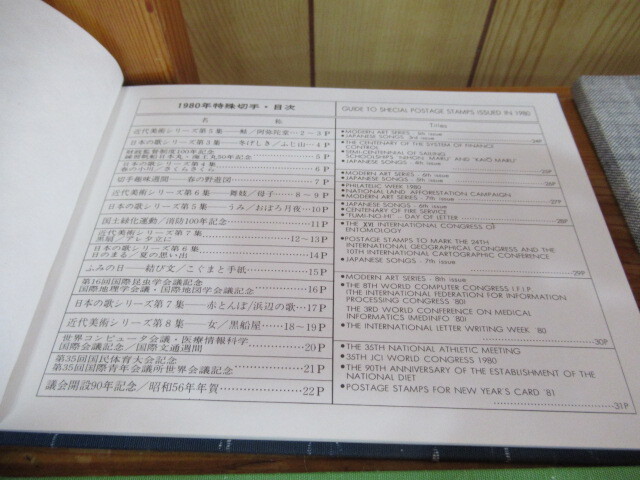 1980年特殊切手・目次
名 称
近代美術シリーズ第5集──鮭/阿弥陀堂…2〜3P
日本の歌シリーズ第3集──冬げしき/ふじ山…4P
財政監督制度100年記念
練習帆船日本丸・海王丸50年記念………5P
日本の歌シリーズ第4集
春の小川/さくらさくら………6P
切手趣味週間──春の野遊図………7P
近代美術シリーズ第6集──舞妓/母子…8〜9P
日本の歌シリーズ第5集──うみ/おぼろ月夜…10P
国土緑化運動/消防100年記念………11P
近代美術シリーズ第7集
黒扇/アレタ立に………12〜13P
日本の歌シリーズ第6集
日のまる/夏の思い出………14P
ふみの日──結び文/こぐまと手紙………15P
第16回国際昆虫学会議記念
国際地理学会議・国際地図学会議記念………16P
日本の歌シリーズ第7集──赤とんぼ/浜辺の歌…17P
近代美術シリーズ第8集──女/黒船屋…18〜19P
世界コンピュータ会議・医療情報科学
国際会議記念/国際文通週間………20P
第35回国民体育大会記念
第35回国際青年会議所世界会議記念………21P
議会開設90年記念/昭和56年年賀………22P
GUIDE TO SPECIAL POSTAGE STAMPS ISSUED IN 1980
●MODERN ART SERIES - 5th issue
●JAPANESE SONGS - 3rd issue
24P
●THE CENTENARY OF THE SYSTEM OF FINANCE
CONTROL
●SEMI-CENTENNIAL OF SAILING
SCHOOLSHIPS "NIHON MARU" AND "KAIO MARU"
●JAPANESE SONGS - 4th issue
●MODERN ART SERIES - 6th issue
●JAPANESE SONGS - 5th issue
26P
●PHILATELIC WEEK 1980
●NATIONAL LAND AFFORESTATION CAMPAIGN
●MODERN ART SERIES - 7th issue
27P
●JAPANESE SONGS - 6th issue
●CENTENARY OF FIRE SERVICE
●"FUMI-NO-HI" - DAY OF LETTER
28P
●THE XVI INTERNATIONAL CONGRESS OF
ENTOMOLOGY
●POSTAGE STAMPS TO MARK THE 24TH
INTERNATIONAL GEOGRAPHICAL CONGRESS AND THE
10TH INTERNATIONAL CARTOGRAPHIC CONFERENCE
●JAPANESE SONGS - 7th issue
29P
●MODERN ART SERIES - 8th issue
●THE 8TH WORLD COMPUTER CONGRESS I.F.I.P
(THE INTERNATIONAL FEDERATION FOR INFORMATION
PROCESSING CONGRESS '80)
THE 3RD WORLD CONFERENCE ON MEDICAL
INFORMATICS (MEDINFO '80)
●THE INTERNATIONAL LETTER WRITING WEEK '80
30P
●THE 35TH NATIONAL ATHLETIC MEETING
●35TH JCI WORLD CONGRESS 1980
●THE 90TH ANNIVERSARY OF THE ESTABLISHMENT OF THE
NATIONAL DIET
●POSTAGE STAMPS FOR NEW YEAR'S CARD '81
31P